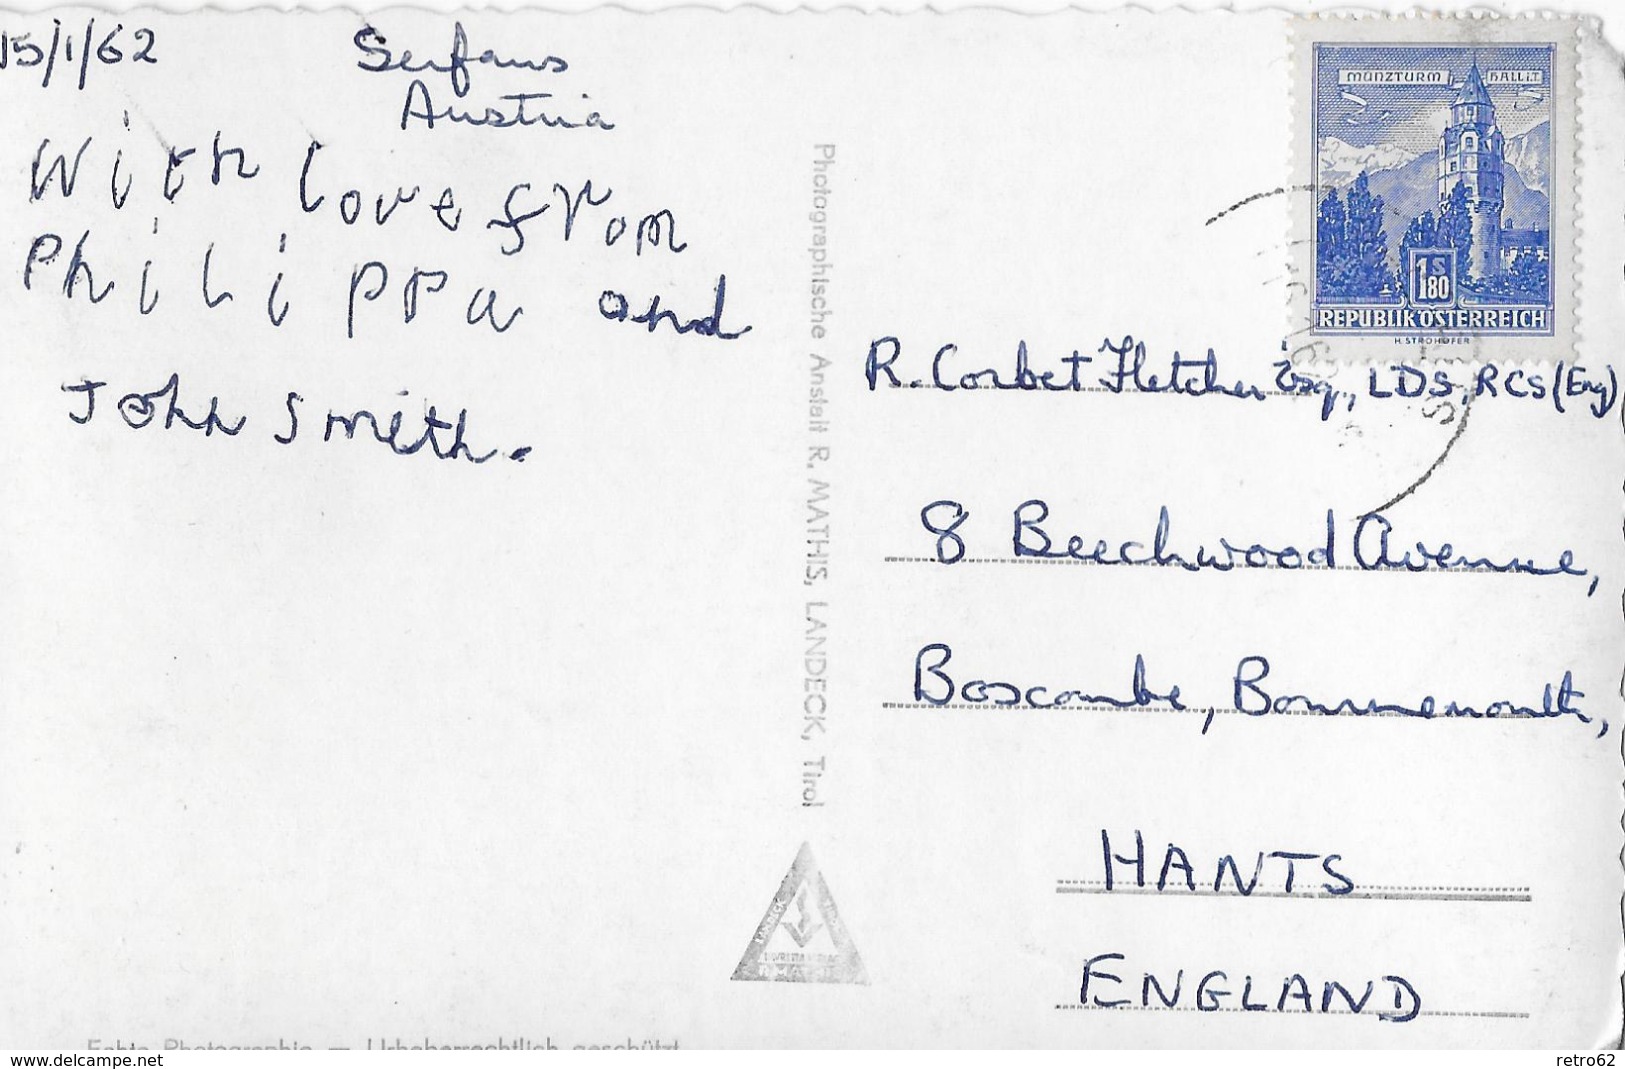 15/1/62
Serfaus
Austria
With love from
Philippa and
John Smith.
MÜNZTURM HALL i.T.
1S80
REPUBLIK ÖSTERREICH
H. STROHOFER
R. Corbet Fletcher Esq., LDS, RCS (Eng)
8 Beechwood Avenue,
Boscombe, Bournemouth,
HANTS
ENGLAND
Photographische Anstalt R. MATHIS, LANDECK, Tirol
LANDECK
Echte Photographie — Urheberrechtlich geschützt
delcampe.net
retro62